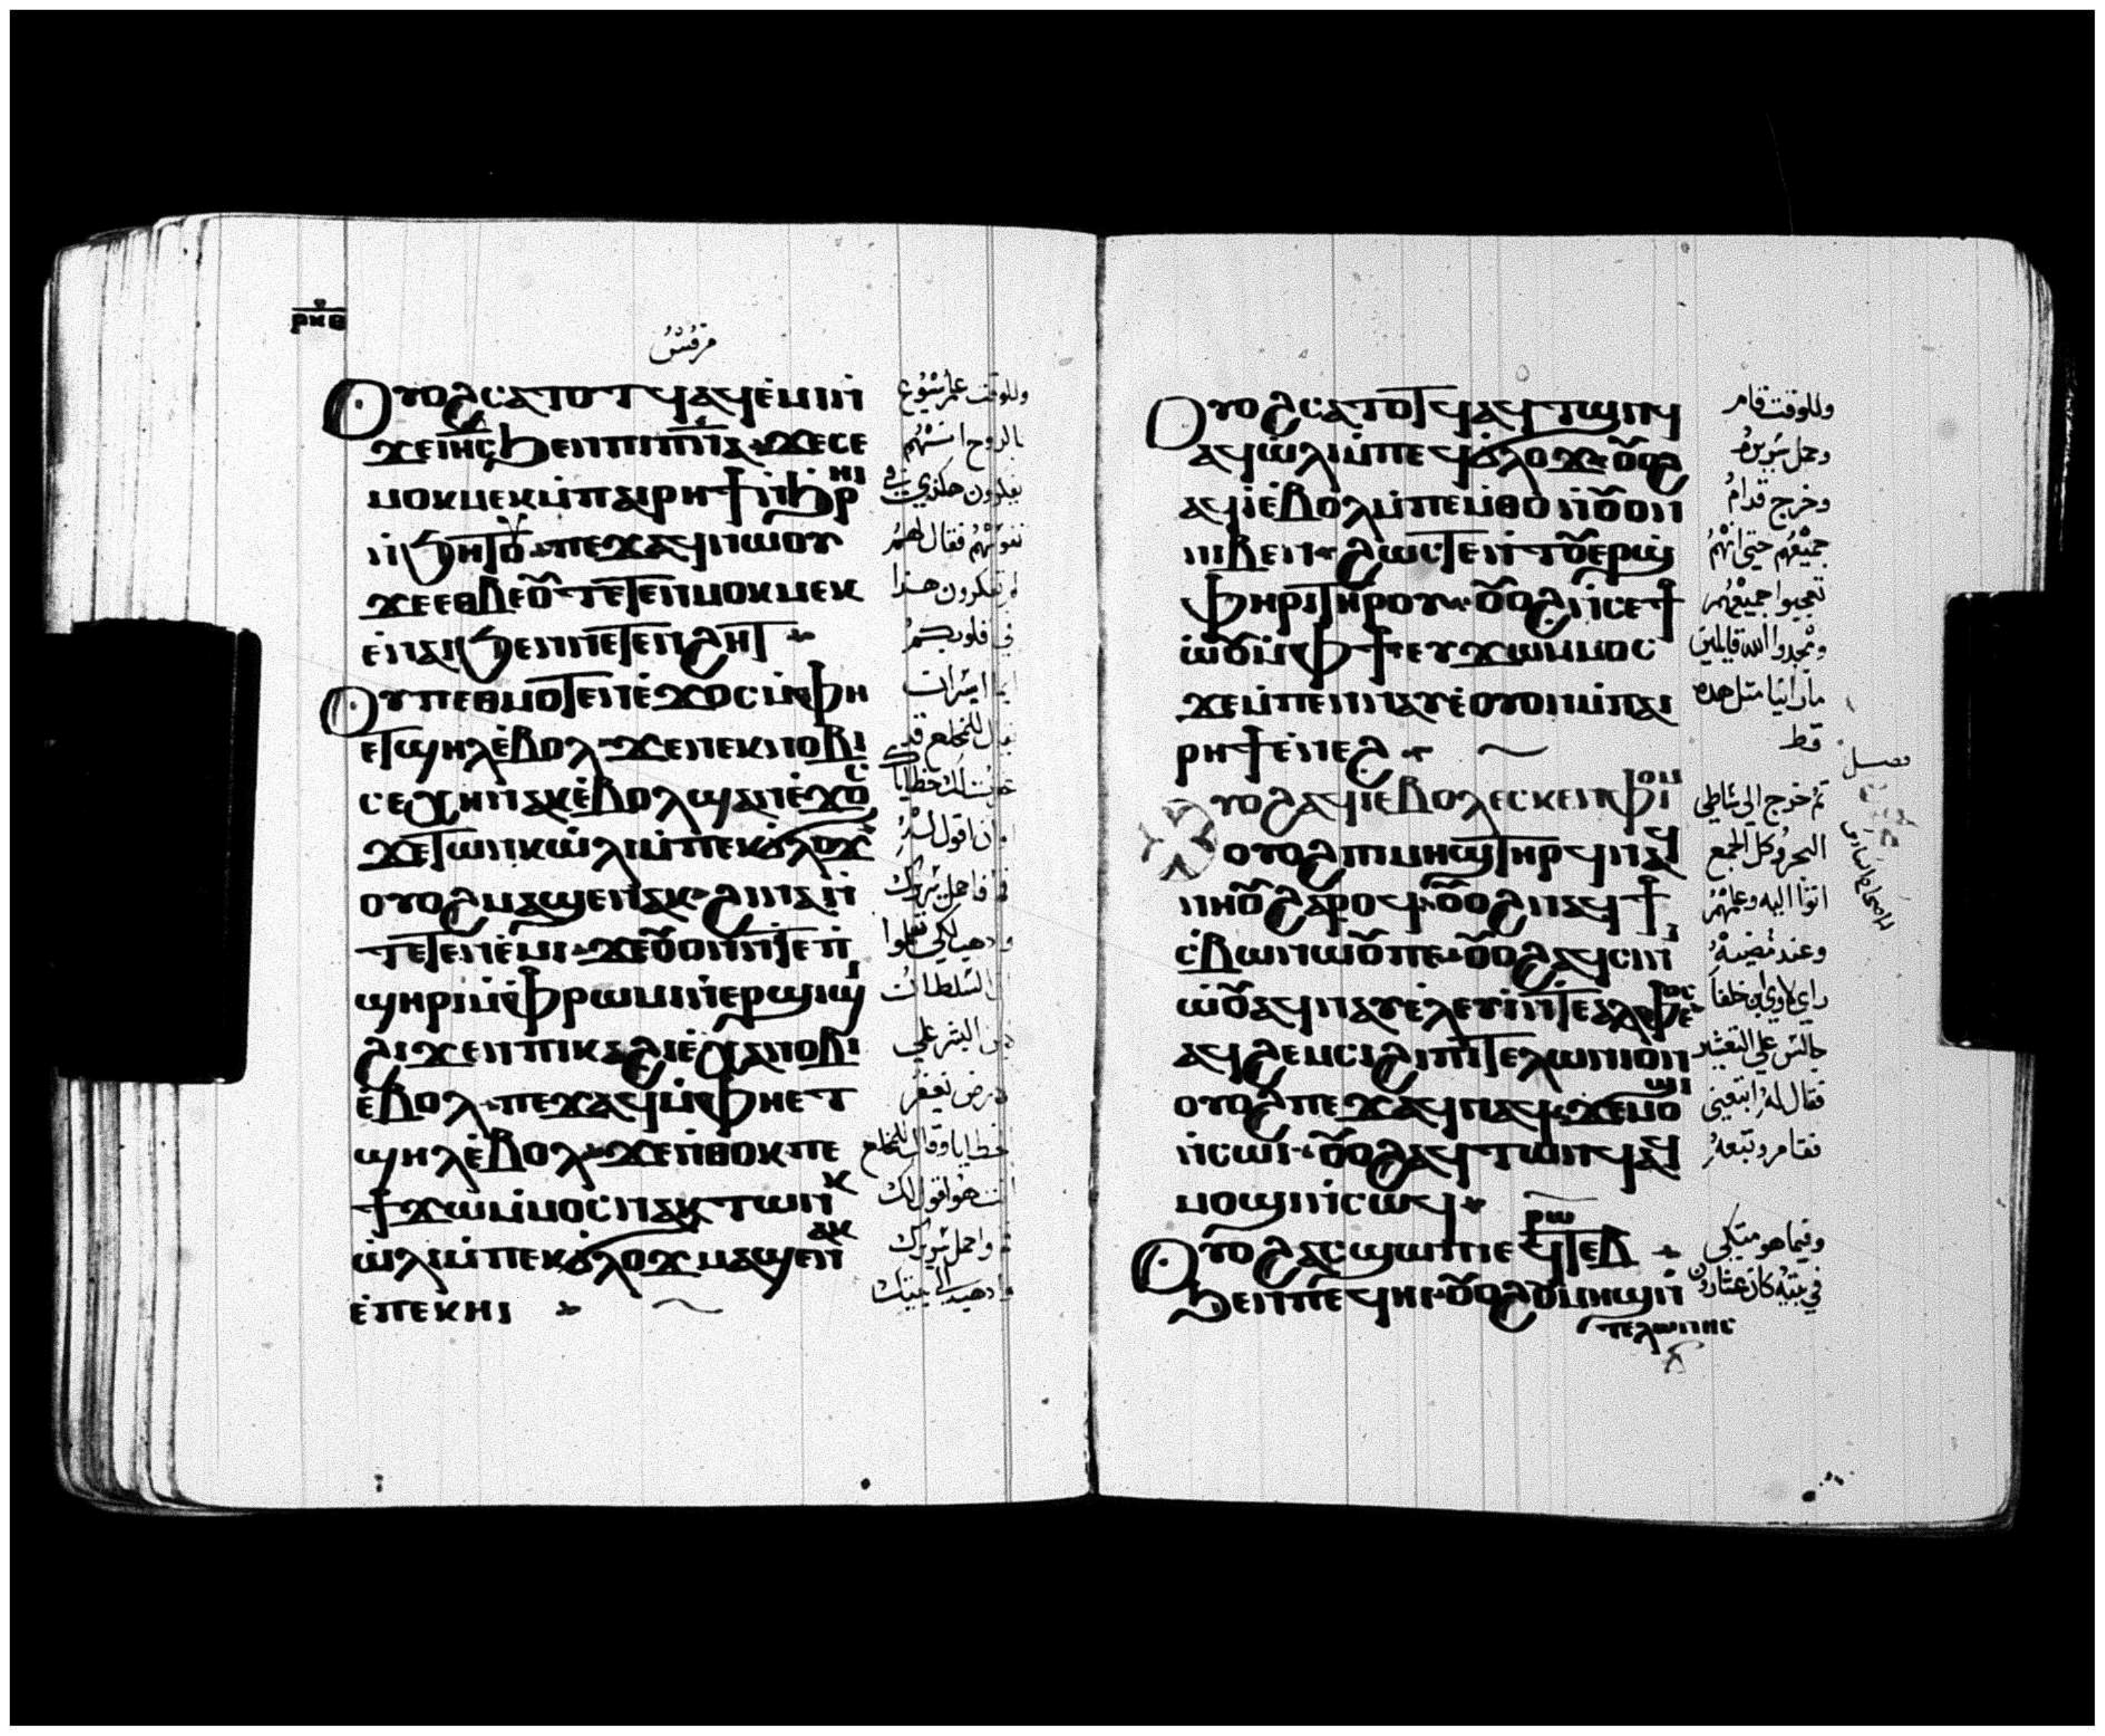 ⲣⲕⲑ
مرقس
Ⲟⲩⲟϩ ⲥⲁⲧⲟⲧϥ ⲁϥⲉ̀ⲙⲓ ⲛ̀
ϫⲉ ⲓⲏⲥ ϧⲉⲛ ⲡⲓⲡⲛⲁ ϫⲉ ⲥⲉ
ⲙⲟⲕⲙⲉⲕ ⲙ̀ⲡⲁⲓⲣⲏϯ ⲛ̀ϧⲣⲏⲓ
ⲛ̀ϧⲏⲧⲟⲩ ⲡⲉϫⲁϥ ⲛⲱⲟⲩ
ϫⲉ ⲉⲑⲃⲉⲟⲩ ⲧⲉⲧⲉⲛⲙⲟⲕⲙⲉⲕ
ⲉ̀ⲛⲁⲓ ϧⲉⲛ ⲛⲉⲧⲉⲛϩⲏⲧ
Ⲟⲩ ⲡⲉⲑⲙⲟⲧⲉⲛ ⲉ̀ϫⲟⲥ ⲙ̀ⲫⲏ
ⲉⲧϣⲏⲗ ⲉ̀ⲃⲟⲗ ϫⲉ ⲛⲉⲕⲛⲟⲃⲓ
ⲥⲉⲭⲏ ⲛⲁⲕ ⲉ̀ⲃⲟⲗ ϣⲁⲛ ⲉ̀ϫⲟⲥ
ϫⲉ ⲧⲱⲛⲕ ⲱ̀ⲗⲓ ⲙ̀ⲡⲉⲕϭⲗⲟϫ
ⲟⲩⲟϩ ⲙⲁϣⲉⲛⲁⲕ ϩⲓⲛⲁ ⲛ̀
ⲧⲉⲧⲉⲛⲉ̀ⲙⲓ ϫⲉ ⲟⲩⲟⲛⲧⲉ ⲡ
ϣⲏⲣⲓ ⲙ̀ⲫⲣⲱⲙⲓ ⲉⲣϣⲓϣⲓ
ϩⲓϫⲉⲛ ⲡⲓⲕⲁϩⲓ ⲉ̀ⲭⲁ ⲛⲟⲃⲓ
ⲉ̀ⲃⲟⲗ ⲡⲉϫⲁϥ ⲙ̀ⲫⲏ ⲉⲧ
ϣⲏⲗ ⲉ̀ⲃⲟⲗ ϫⲉ ⲛ̀ⲑⲟⲕ ⲡⲉ
ϯϫⲱ ⲙ̀ⲙⲟⲥ ⲛⲁⲕ ⲧⲱⲛⲕ
ⲱ̀ⲗⲓ ⲙ̀ⲡⲉⲕϭⲗⲟϫ ⲙⲁϣⲉⲛⲁⲕ
ⲉ̀ⲡⲉⲕⲏⲓ
وللوقت علم يسوع
بالروح انهم
يفكرون هكذي في
نفوسهم فقال لهم
لم تفكرون هذا
في قلوبكم
ايما ايسر ان
يقال للمخلع قد
غفرت لك خطاياك
ام ان اقول لك
قم فاحمل سريرك
واذهب لكي تعلموا
ان السلطان
لابن البشر علي
الارض يغفر
الخطايا وقال للمخلع
انت هو اقول لك
قم واحمل سريرك
واذهب الي بيتك
Ⲟⲩⲟϩ ⲥⲁⲧⲟⲧϥ ⲁϥⲧⲱⲛϥ
ⲁϥⲱ̀ⲗⲓ ⲙ̀ⲡⲉϥϭⲗⲟϫ ⲟⲩⲟϩ
ⲁϥⲓ̀ ⲉ̀ⲃⲟⲗ ⲙ̀ⲡⲉⲙⲑⲟ ⲛ̀ⲟⲩⲟⲛ
ⲛⲓⲃⲉⲛ ϩⲱⲥⲧⲉ ⲛ̀ⲧⲟⲩⲉⲣϣ
ⲫⲏⲣⲓ ⲧⲏⲣⲟⲩ ⲟⲩⲟϩ ⲛ̀ⲥⲉϯ
ⲱ̀ⲟⲩ ⲙ̀ⲫϯ ⲉⲩϫⲱ ⲙ̀ⲙⲟⲥ
ϫⲉ ⲙ̀ⲡⲉⲛⲛⲁⲩ ⲉ̀ⲟⲩⲟⲛ ⲙ̀ⲡⲁⲓ
ⲣⲏϯ ⲉ̀ⲛⲉϩ
ⲟⲩⲟϩ ⲁϥⲓ̀ ⲉ̀ⲃⲟⲗ ⲉⲥⲕⲉⲛ ⲫⲓⲟⲙ
ⲟⲩⲟϩ ⲡⲓⲙⲏϣ ⲧⲏⲣϥ ⲛⲁϥ
ⲛⲏⲟⲩ ϩⲁⲣⲟϥ ⲟⲩⲟϩ ⲛⲁϥϯ
ⲥ̀ⲃⲱ ⲛⲱⲟⲩ ⲡⲉ ⲟⲩⲟϩ ⲁϥⲥⲓⲛⲓ
ⲱ̀ⲟⲩ ⲁϥⲛⲁⲩ ⲉ̀ⲗⲉⲩⲓ̀ ⲛ̀ⲧⲉ ⲁⲗⲫⲉⲟⲥ
ⲁϥϩⲉⲙⲥⲓ ϩⲓ ⲡⲓⲧⲉⲗⲱⲛⲓⲟⲛ
ⲟⲩⲟϩ ⲡⲉϫⲁϥ ⲛⲁϥ ϫⲉ ⲙⲟϣⲓ
ⲛ̀ⲥⲱⲓ ⲟⲩⲟϩ ⲁϥⲧⲱⲛϥ ⲁϥ
ⲙⲟϣⲓ ⲛ̀ⲥⲱϥ
Ⲟⲩⲟϩ ⲁⲥϣⲱⲡⲓ ⲉϥⲣⲱⲧⲉⲃ
ϧⲉⲛ ⲡⲉϥⲏⲓ ⲟⲩⲟϩ ⲟⲩⲙⲏϣ ⲛ̀
ⲧⲉⲗⲱⲛⲏⲥ
وللوقت قام
وحمل سريره
وخرج قدام
جميعهم حتي انهم
تعجبوا جميعهم
ومجدوا الله قايلين
ما راينا مثل هده
قط
فصل
ثم خرج الي شاطي
البحر وكل الجمع
اتوا اليه وعلمهم
وعند مضيه
راي لاوي ابن حلفا
جالس علي التعشير
فقال له اتبعني
فقام وتبعه
وفيما هو متكي
في بيته كان عشارون